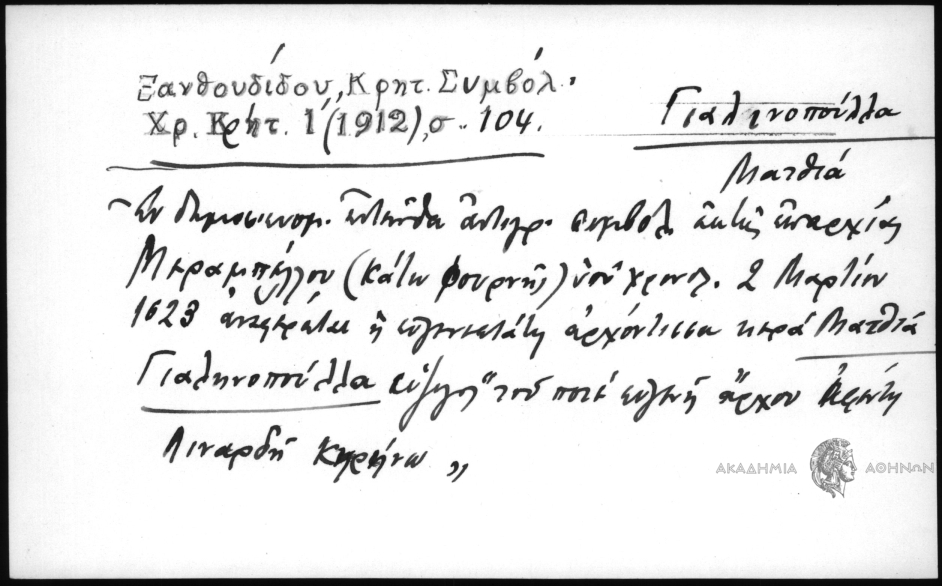 Ξανθουδίδου, Κρητ. Συμβόλ.
Χρ. Κρήτ. 1 (1912), σ. 104.
Γιαληνοπούλλα
Ματθιά
Ἐν δημοσιευομ. ἐνταῦθα ἀντιγρ. συμβολ. ἐκ τῆς ἐπαρχίας
Μιραμπέλλου (κάτω Φουρνῆ) ὑπὸ χρονολ. 2 Μαρτίου
1623 ἀναφέρεται ἡ εὐγενεστάτη ἀρχόντισσα κερά Ματθιά
Γιαληνοπούλλα σύζυγος "τοῦ ποτέ εὐγενῆ ἄρχου
Λιναρδῆ "
ΑΚΑΔΗΜΙΑ ΑΘΗΝΩΝ